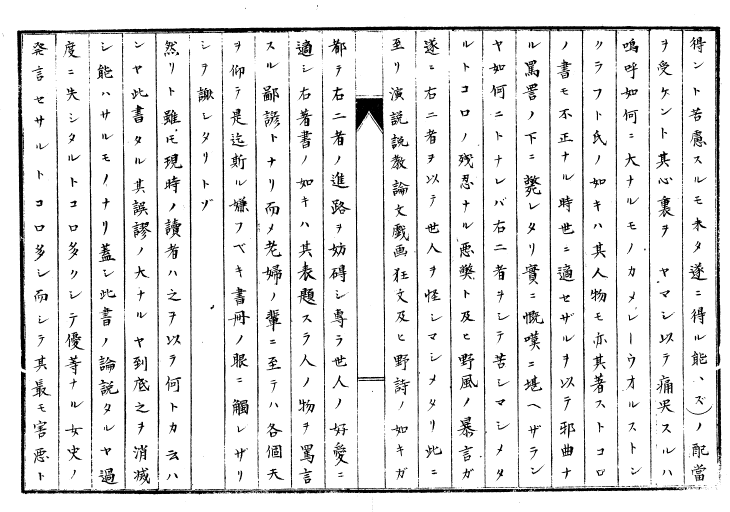 得ント苦慮スルモ未タ遂ニ得ル能ハズ)ノ配當
ヲ受ケント其心裏ヲヤマシ以テ痛哭スルハ
嗚呼如何ニ大ナルモノカメレーウオルストン
クラフト氏ノ如キハ其人物モ亦其著ストコロ
ノ書モ不正ナル時世ニ適セザルヲ以テ邪曲ナ
ル罵詈ノ下ニ斃レタリ實ニ慨嘆ニ堪ヘザラン
ヤ如何ニトナレバ右二者ヲシテ苦シマシメタ
ルトコロノ残忍ナル悪弊ト及ヒ野風ノ暴言ガ
遂ニ右二者ヲ以テ世人ヲ怪シマシメタリ此ニ
至リ演説説教論文戯画狂文及ヒ野詩ノ如キガ
都ヲ右二者ノ進路ヲ妨碍シ専ラ世人ノ好愛ニ
適シ右著書ノ如キハ其表題スラ人ノ物ヲ罵言
スル鄙諺トナリ而メ老婦ノ輩ニ至テハ各個天
ヲ仰テ是迄斯ル嫌フベキ書冊ノ眼ニ觸レザリ
シヲ謝シタリトゾ
然リト雖モ現時ノ讀者ハ之ヲ以テ何トカ云ハ
ンヤ此書タル其誤謬ノ大ナルヤ到底之ヲ消滅
シ能ハサルモノナリ蓋シ此書ノ論説タルヤ過
度ニ失シタルトコロ多クシテ優等ナル女史ノ
発言セサルトコロ多シ而シテ其最モ害悪ト